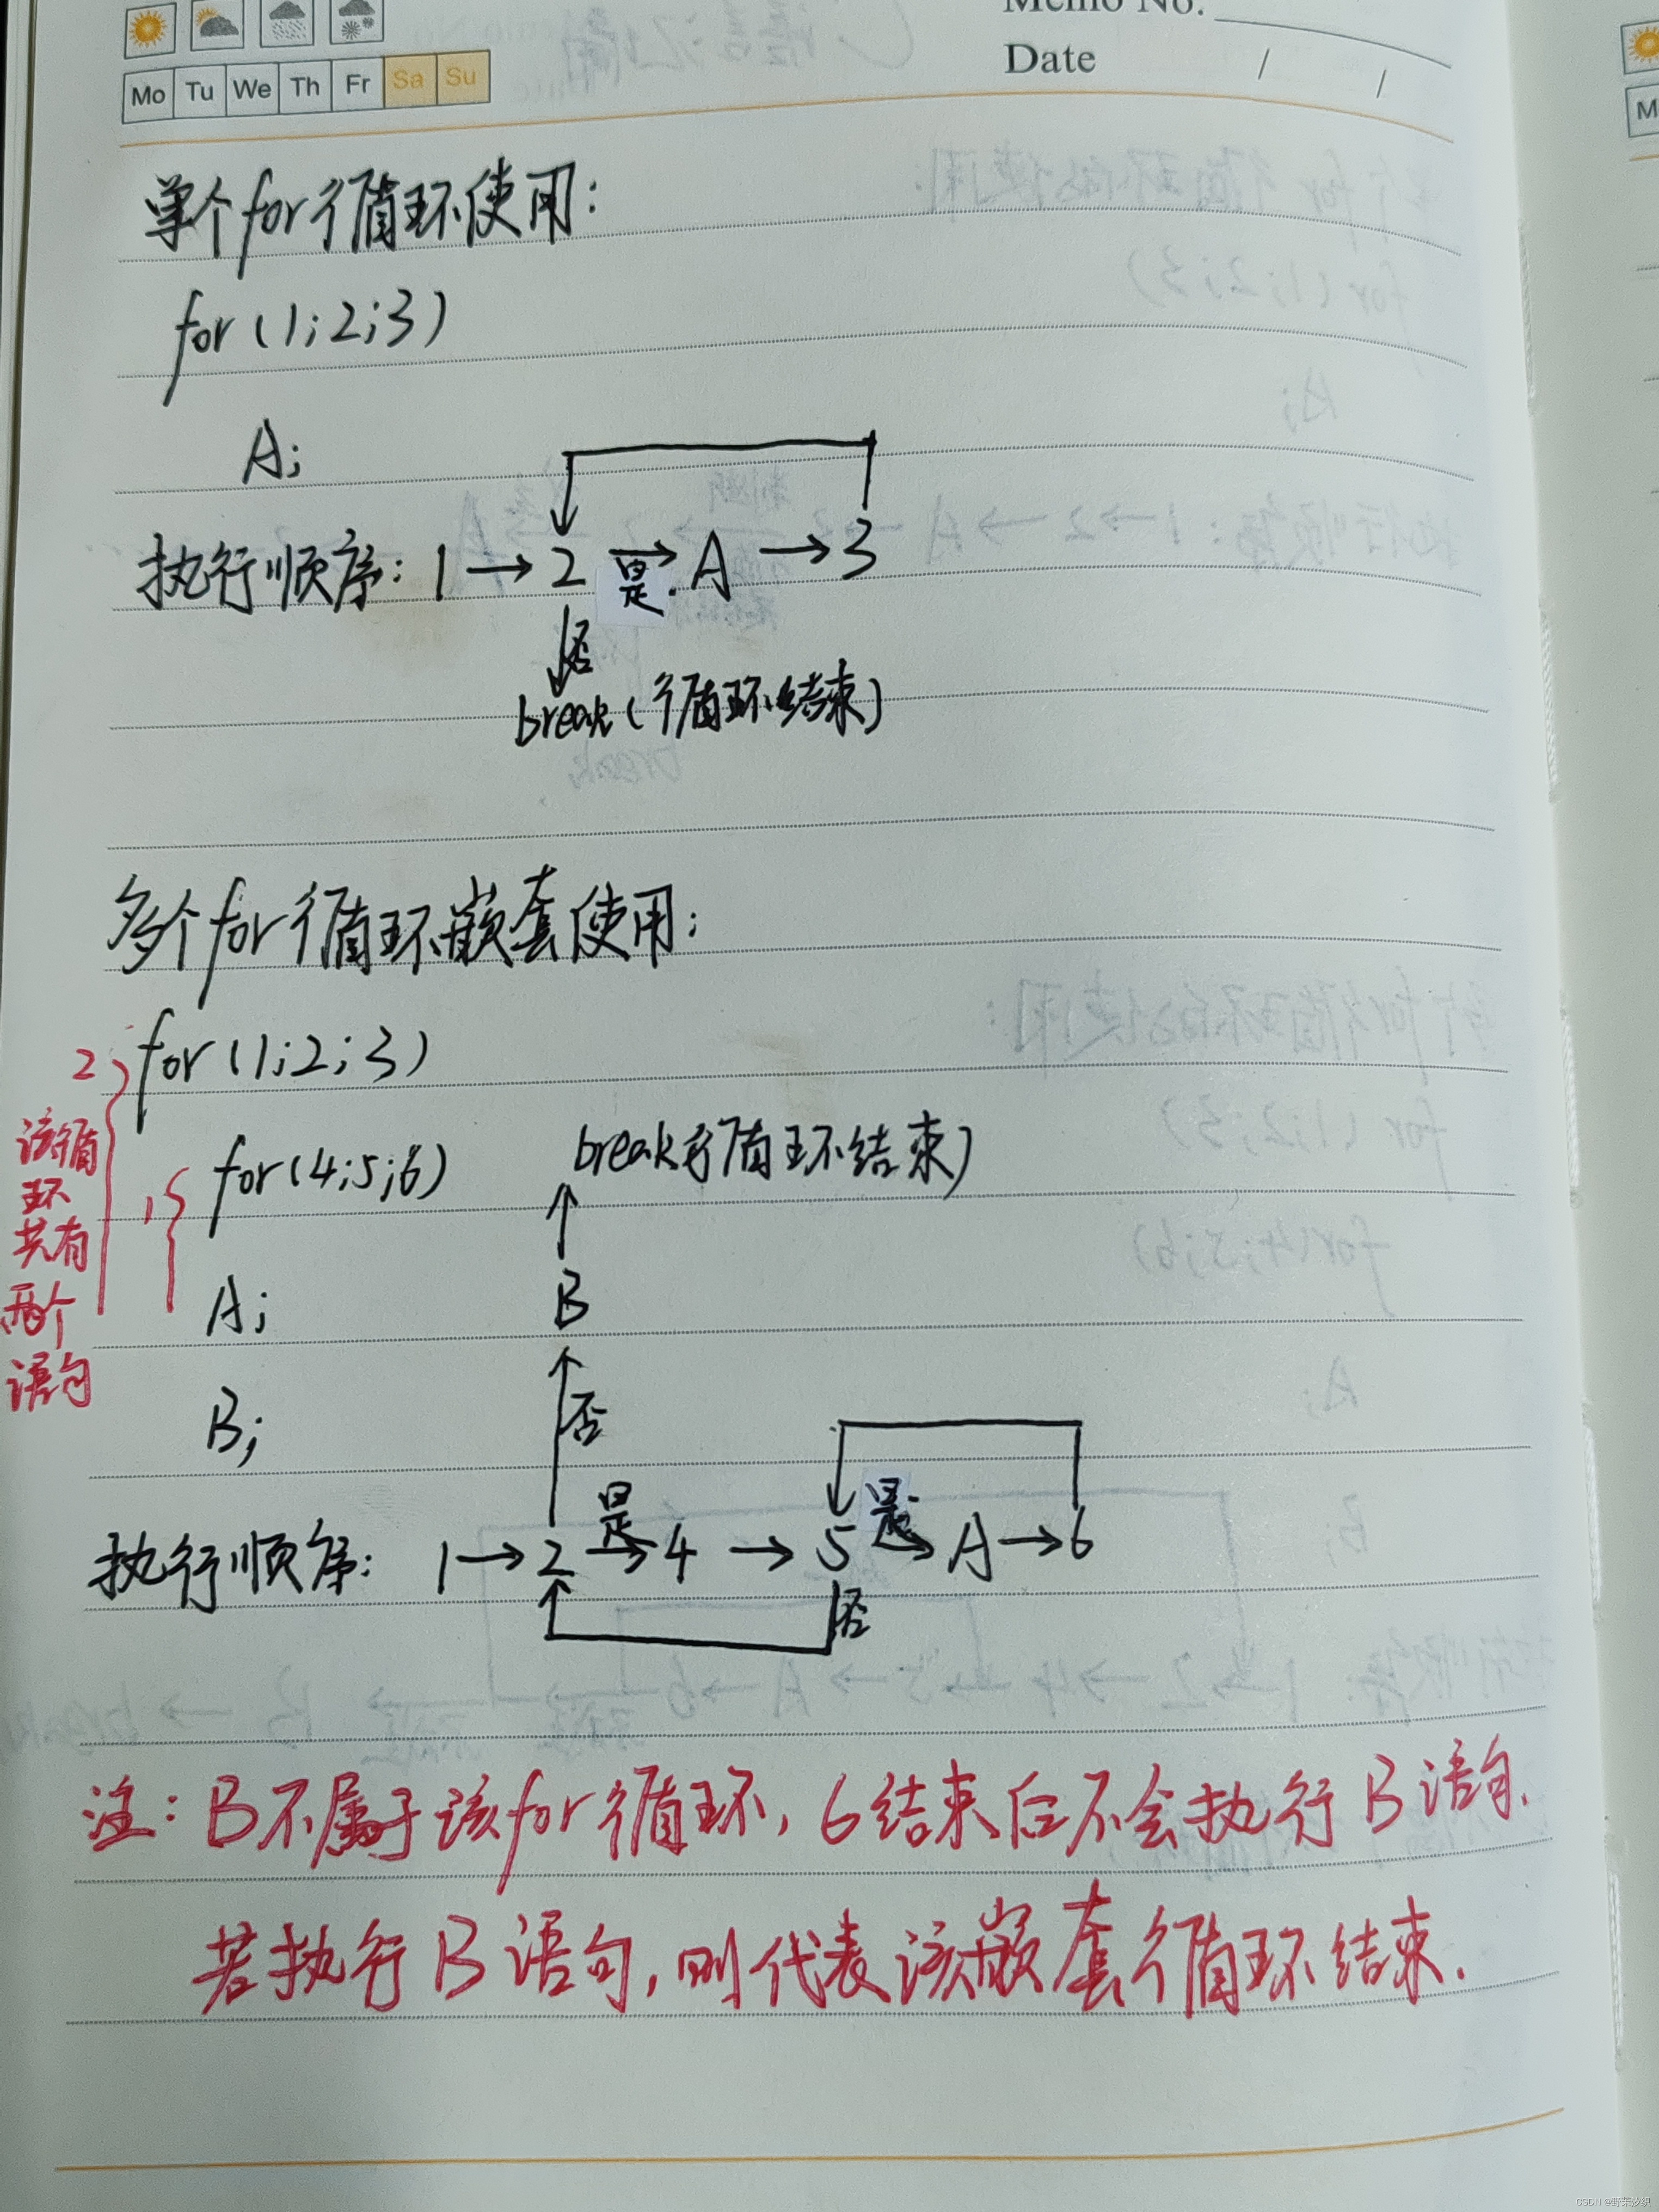 Memo No.
Date / /
Mo Tu We Th Fr Sa Su
单个for循环使用:
for(1;2;3)
A;
执行顺序: 1→2 是→ A →3
否
break(循环结束)
多个for循环嵌套使用:
for(1;2;3)
for(4;5;6)
A;
B;
2
1
该循
环
共有
两个
语句
break(循环结束)
B
否
执行顺序: 1→2 是→ 4 → 5 是→ A→6
否
注: B不属于该for循环, 6结束后不会执行B语句.
若执行B语句, 则代表该嵌套循环结束.
M
CSDN @野茶汐织